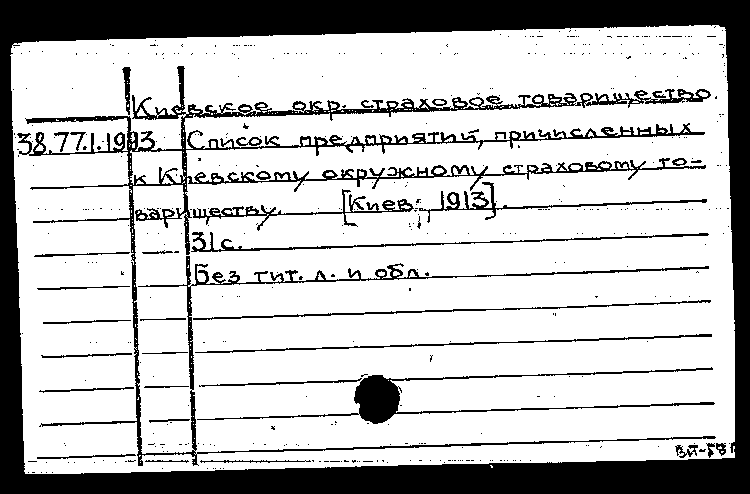 Киевское окр. страховое товарищество.
38.77.1.1993. Список предприятий, причисленных
к Киевскому окружному страховому то-
вариществу. [Киев, 1913].
31 с.
Без тит. л. и обл.